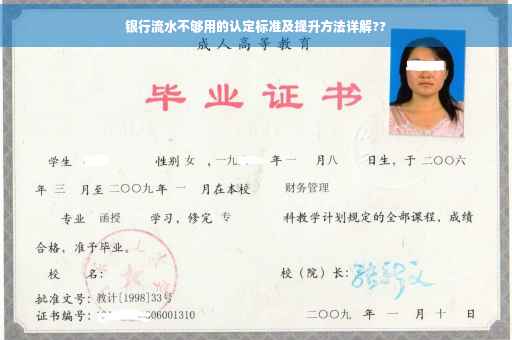 银行流水不够用的认定标准及提升方法详解??
成人高等教育
毕业证书
学生 性别 女 ,一九 年 一 月八 日生,于 二〇〇六
年 三 月至 二〇〇九 年 一 月在本校 财务管理
专业 函授 学习,修完 专 科教学计划规定的全部课程,成绩
合格,准予毕业。
校 名: 校(院)长:
批准文号: 教计[1998]33号
证书编号: 006001310 二〇〇九 年 一 月 十 日